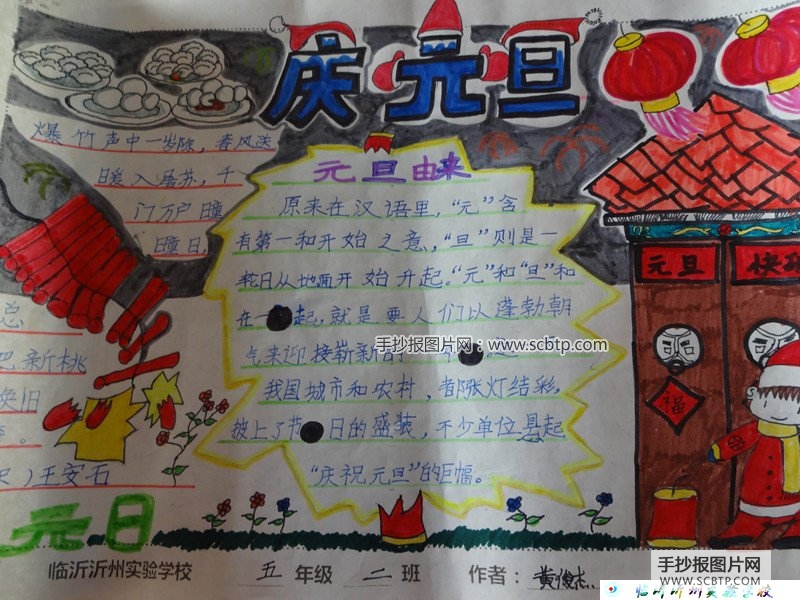 庆元旦
爆竹声中一岁除，春风送
暖入屠苏，千
门万户曈
曈日，
总
把新桃
换旧
）王安石
元日
元旦由来
原来在汉语里，“元”含
有第一和开始之意，“旦”则是一
轮日从地面开始升起。“元”和“旦”和
在一起，就是要人们以蓬勃朝
气来迎接崭新的一
我国城市和农村，都张灯结彩，
披上了节日的盛装，不少单位悬起
“庆祝元旦”的巨幅。
元旦
快
福
手抄报图片网：www.scbtp.com
临沂沂州实验学校 五年级 二班 作者：黄俊杰
手抄报图片网
www.SCBTP.com
临沂沂州实验学校